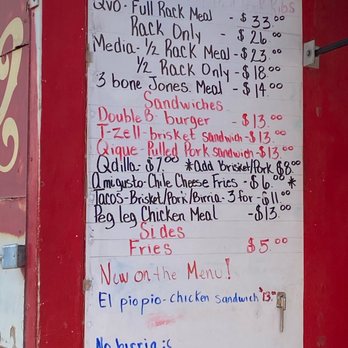 Qvo - Full Rack Meal - $33.00
Rack Only - $26.00
Media - 1/2 Rack Meal - $23.00
1/2 Rack Only - $18.00
3 bone Jones Meal - $14.00
Sandwiches
Double B burger - $13.00
T-zell-brisket sandwich-$13.00
Qique-Pulled Pork sandwich-$13.00
Qdilla-$7.00 *add Brisket/Pork $8.00
Amigusto-Chile Cheese Fries - $6.00 *
Tacos-Brisket/Pork/Birria-3 for-$11.00
Peg leg Chicken Meal -$13.00
Sides
Fries $5.00
New on the Menu!
El pio pio-chicken sandwich $13.00
No birria :c